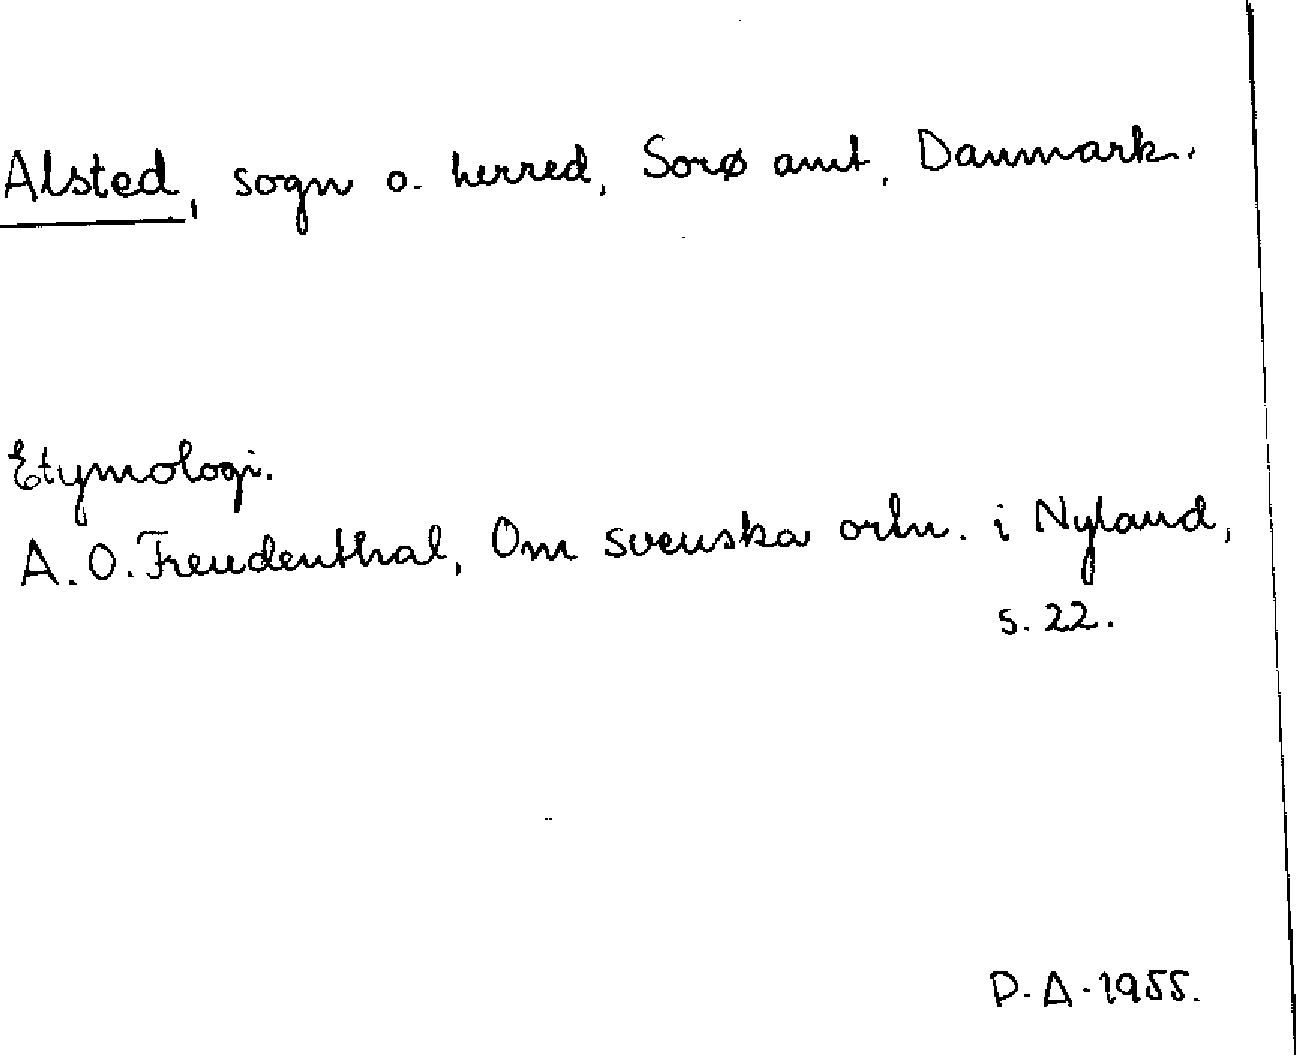 Alsted, sogn o. herred, Sorø amt, Danmark.
Etymologi.
A. O. Freudenthal, Om svenska ortn. i Nyland,
s. 22.
P. A. 1955.